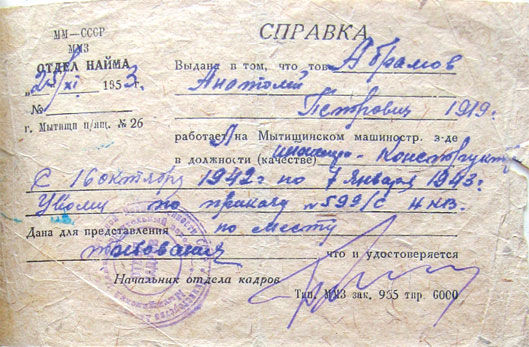 ММ—СССР
ММЗ
ОТДЕЛ НАЙМА
„25/XI 1953г.
№
г. Мытищи п/ящ. № 26
СПРАВКА
Выдана в том, что тов. Абрамов
Анатолий
Петрович 1919г.
работает на Мытищинском машиностр. з-де
в должности (качестве) инженера-Конструкт
С 16 октября 1942г по 7 января 1943г.
по приказу н599/с
Дана для представления по месту
требования что и удостоверяется
Начальник отдела кадров
Тип. ММЗ зак. 955 тир. 6000